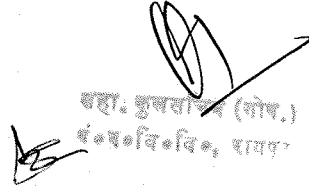 सहा. कुलसचिव (गोप.)
पं०र०वि०वि०, रायपुर